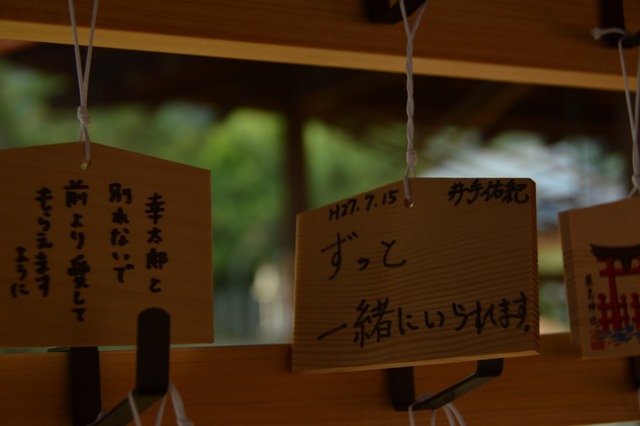 幸太郎と
別れないで
前より愛して
もらえます
ように
H27.7.15
井手佑紀
ずっと
一緒にいられます。